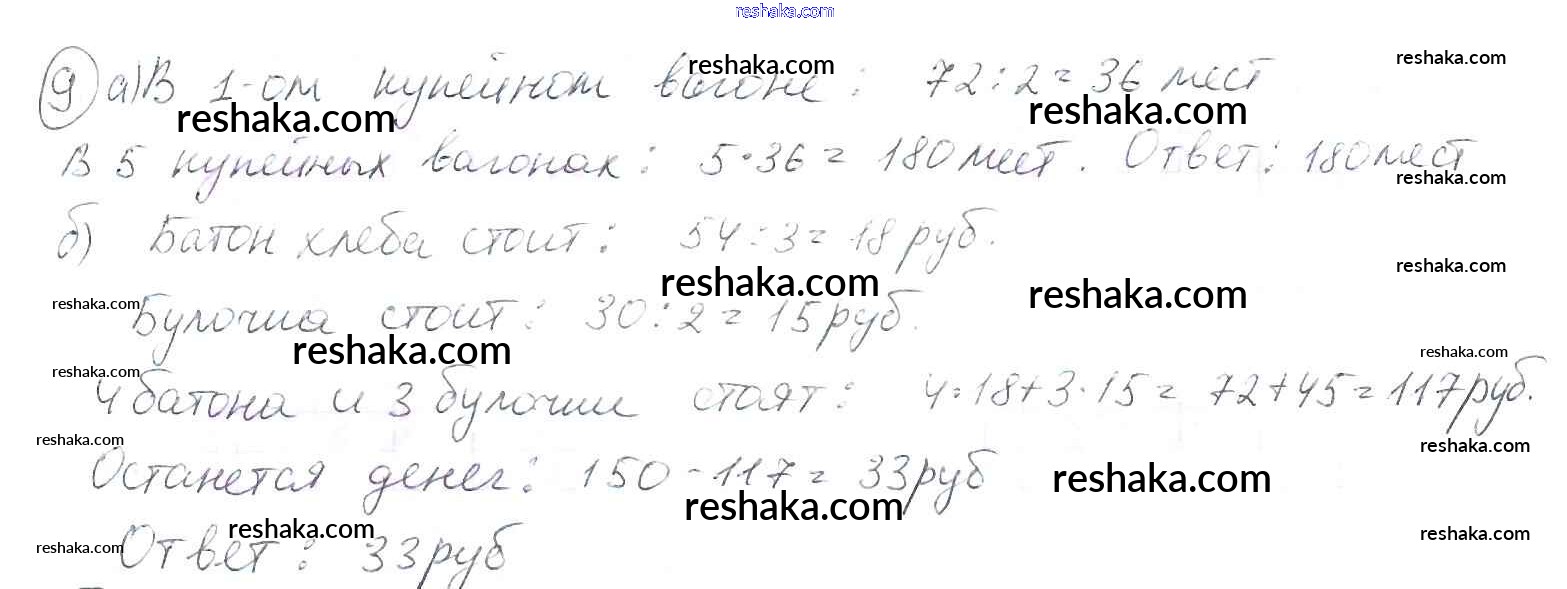 reshaka.com
9 а) В 1-ом купейном вагоне: 72:2=36 мест
reshaka.com reshaka.com
reshaka.com reshaka.com
В 5 купейных вагонах: 5·36=180 мест. Ответ: 180 мест
reshaka.com
б) Батон хлеба стоит: 54:3=18 руб.
reshaka.com reshaka.com reshaka.com
reshaka.com Булочка стоит: 30:2=15 руб.
reshaka.com reshaka.com
reshaka.com
4 батона и 3 булочки стоят: 4·18+3·15=72+45=117 руб.
reshaka.com reshaka.com
Останется денег: 150-117=33 руб
reshaka.com reshaka.com
reshaka.com reshaka.com
reshaka.com Ответ: 33 руб